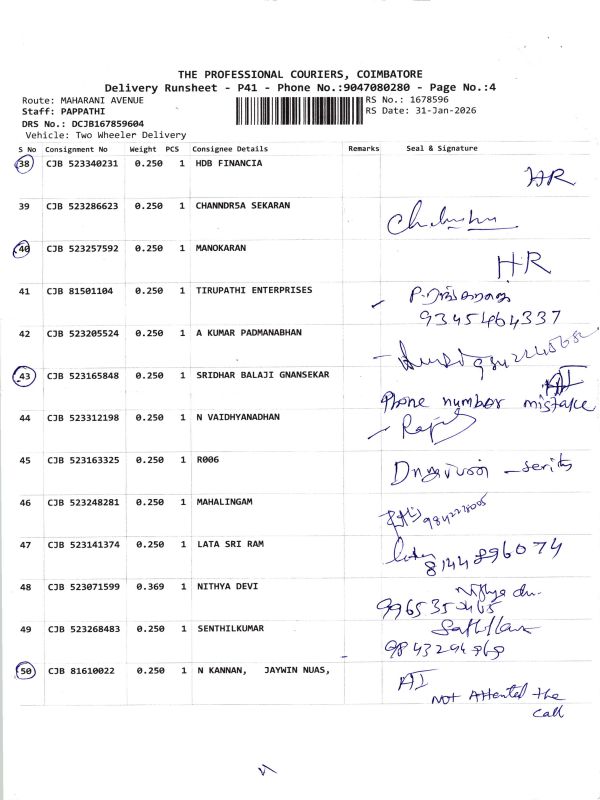 THE PROFESSIONAL COURIERS, COIMBATORE
Delivery Runsheet - P41 - Phone No.:9047080280 - Page No.:4
Route: MAHARANI AVENUE RS No.: 1678596
Staff: PAPPATHI RS Date: 31-Jan-2026
DRS No.: DCJB167859604
Vehicle: Two Wheeler Delivery
S No Consignment No Weight PCS Consignee Details Remarks Seal & Signature
38 CJB 523340231 0.250 1 HDB FINANCIA HR
39 CJB 523286623 0.250 1 CHANNDR5A SEKARAN
40 CJB 523257592 0.250 1 MANOKARAN HR
41 CJB 81501104 0.250 1 TIRUPATHI ENTERPRISES
9345464337
42 CJB 523205524 0.250 1 A KUMAR PADMANABHAN
43 CJB 523165848 0.250 1 SRIDHAR BALAJI GNANSEKAR AI
Phone number mistake
44 CJB 523312198 0.250 1 N VAIDHYANADHAN
45 CJB 523163325 0.250 1 R006
46 CJB 523248281 0.250 1 MAHALINGAM
47 CJB 523141374 0.250 1 LATA SRI RAM lata
8144896074
48 CJB 523071599 0.369 1 NITHYA DEVI
49 CJB 523268483 0.250 1 SENTHILKUMAR
50 CJB 81610022 0.250 1 N KANNAN, JAYWIN NUAS, AI
Not Attented the
call